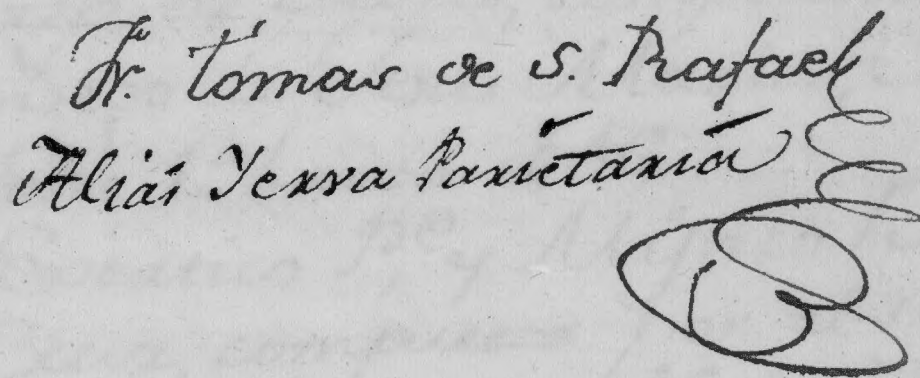 Fr. Tomas de S. Rafael
Alias Yerva Parietaria